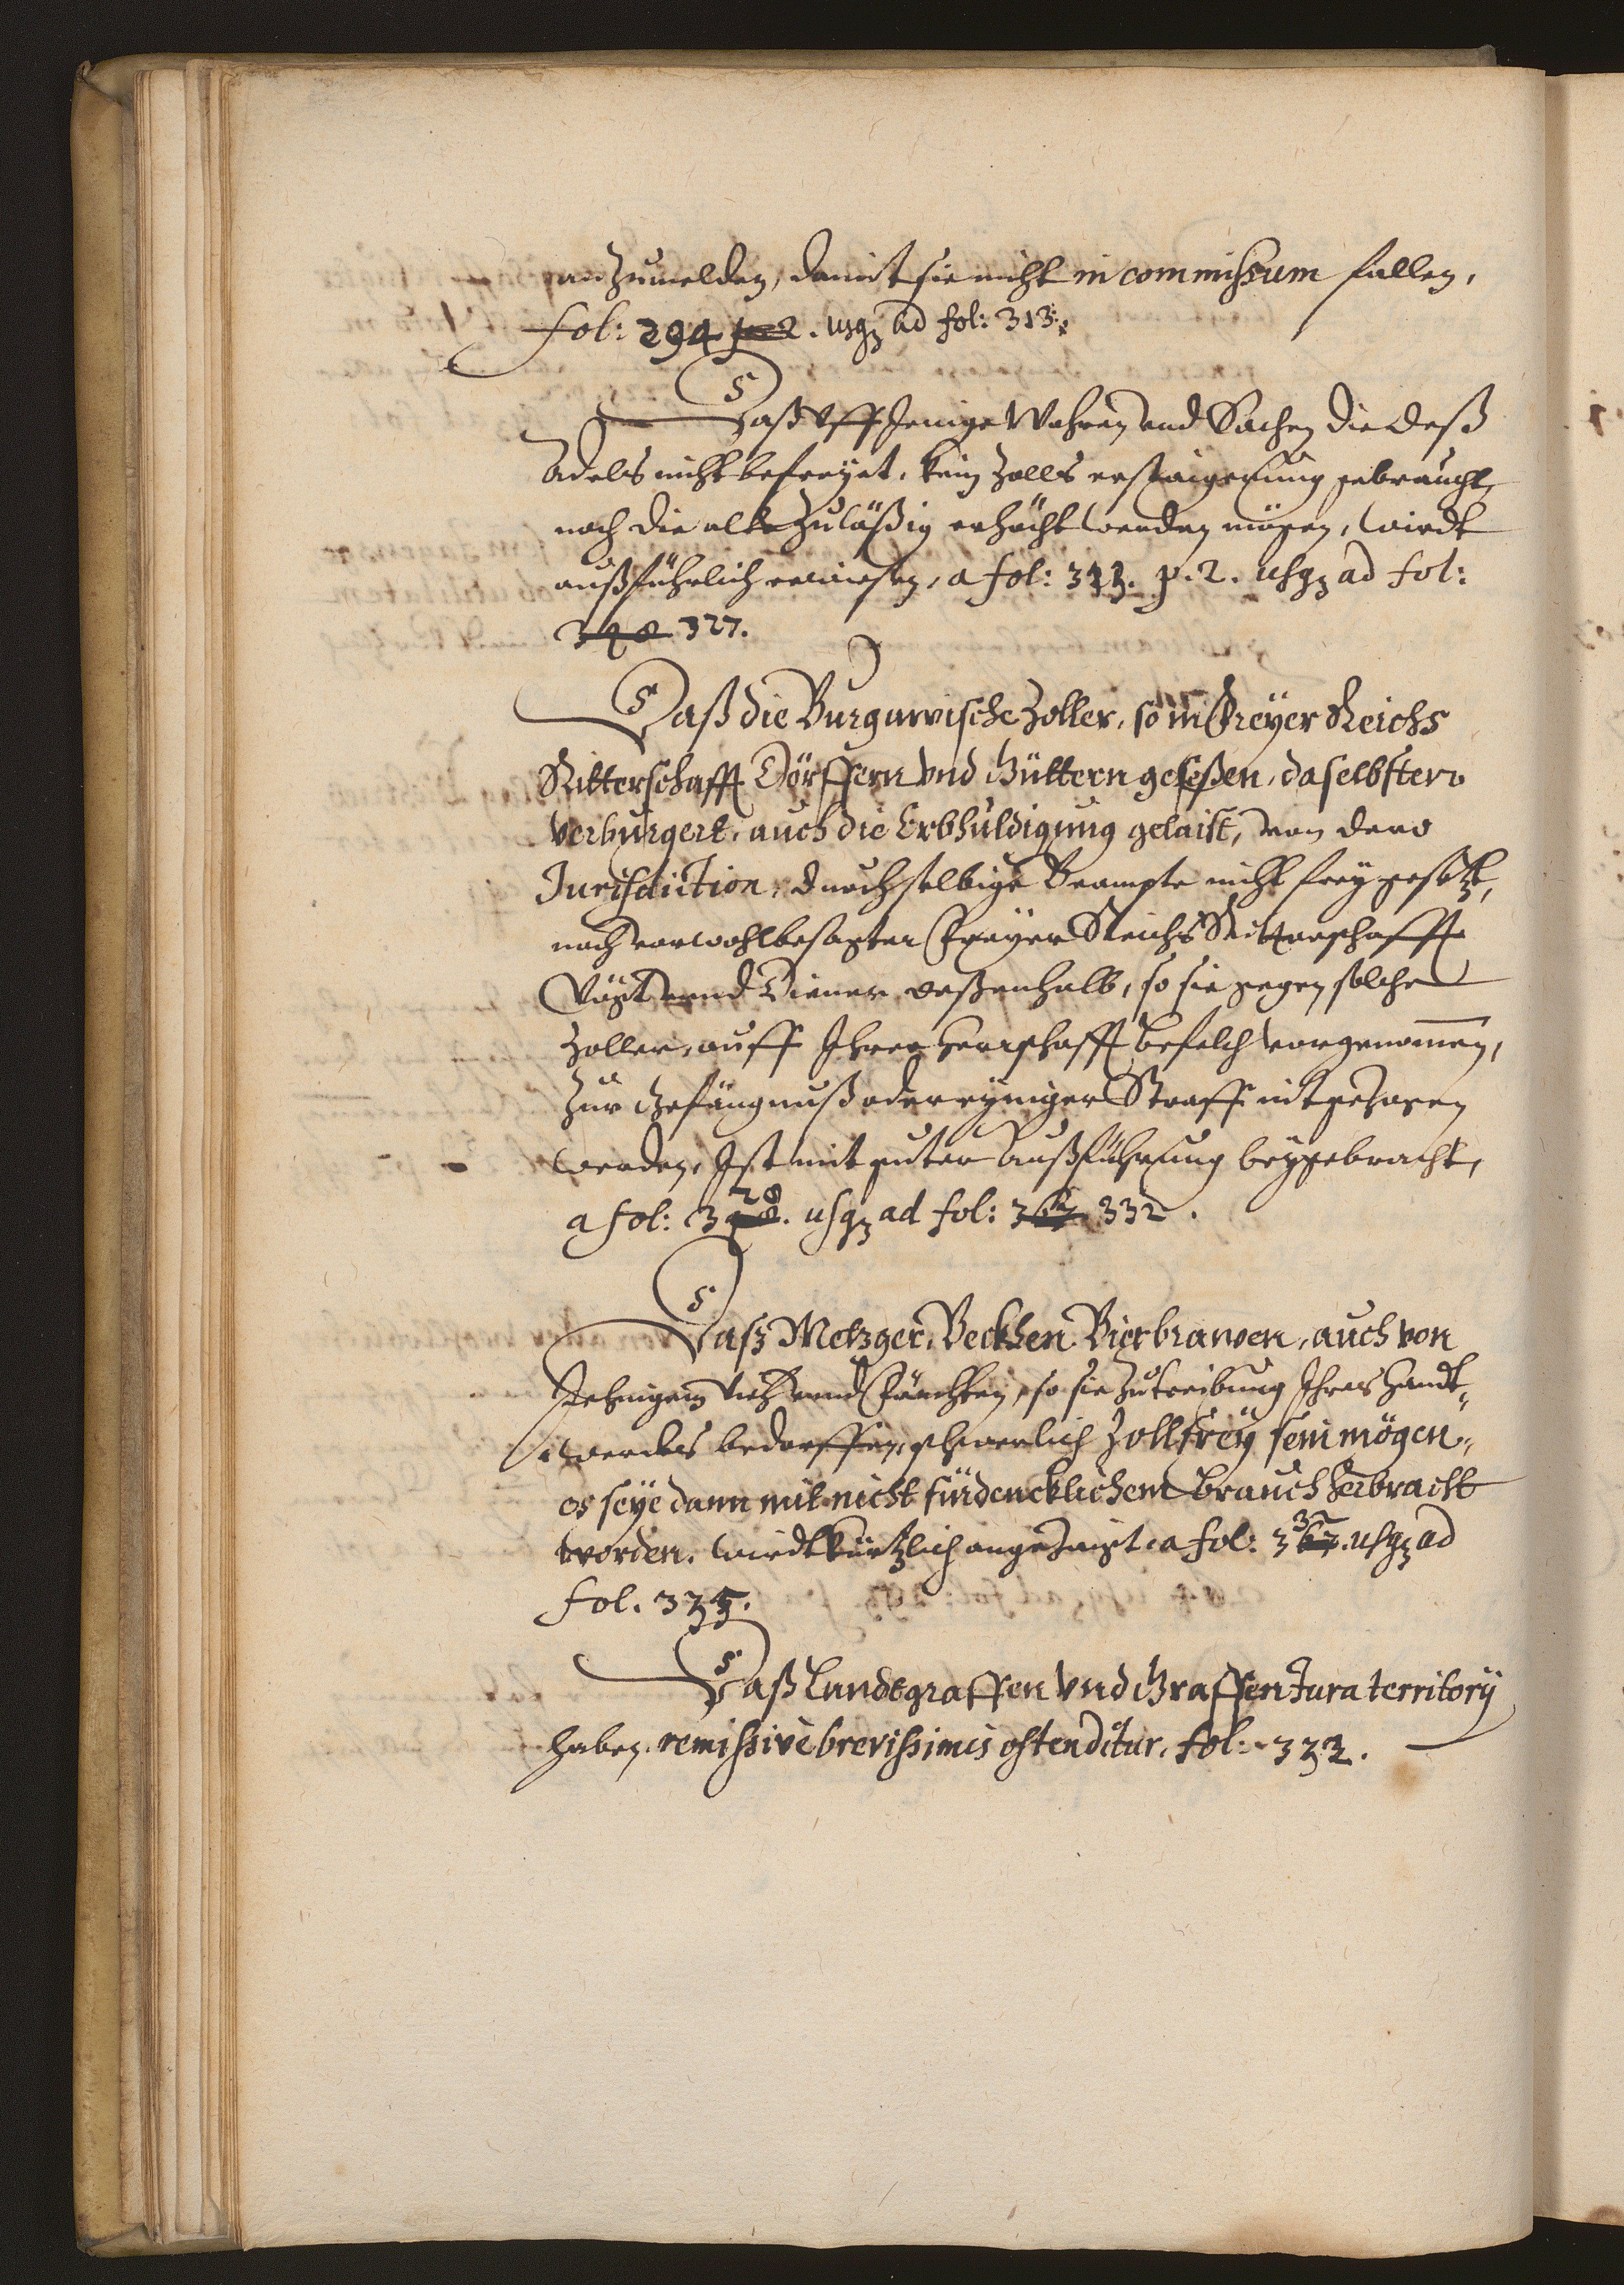 anzumelden, damit sie nicht in commissum fallen,
fol: 294 p. 2. usq ad fol: 313.
Daß Vff Jenige Wahren und Sachen die deß
Adels nicht befreyet, kein Zolls erstaigerung gebraucht,
noch die alte Zuläßig erhöcht werden mögen, wirdt
außführlich erwiesen, a fol: 313. p. 2. usq ad fol:
348 327.
Daß die Burgawische Zoller, so in Freyer Reichs
Ritterschafft Dörffern und Güttern geseßen, daselbsten
verburgert, auch die Erbhuldigung gelaist, von dero
Jurisdiction, durch selbige Beampte nicht frey gesetzt,
noch vorwohlbesagter Freyer Reichs Ritterschafft
Vögt unnd Diener deßenhalb, so sie gegen solche
Zoller, auff Ihrer Herrschafft befelch vorgenommen,
Zur Gefängnuß oder eyniger Straff nit gezogen
werden, Ist mit guter Außführung beygebracht,
a fol: 328. usq ad fol: 332.
Daß Metzger, Beckhen Bierbrawen, auch von
Jehnigem Vieh unnd Früchten, so sie Zutreibung Ihres Handt„
werckes bedorffen, schwerlich Zollfrey sein mögen„
es seye dann mit nicht fürdencklichem brauch herbracht
worden. wirdt kürtzlich angezeigt. a fol: 332. usq ad
fol. 335.
Daß Landtgraffen und Graffen Jura territorij
haben, remissivè brevissimis ostenditur, fol: 333.